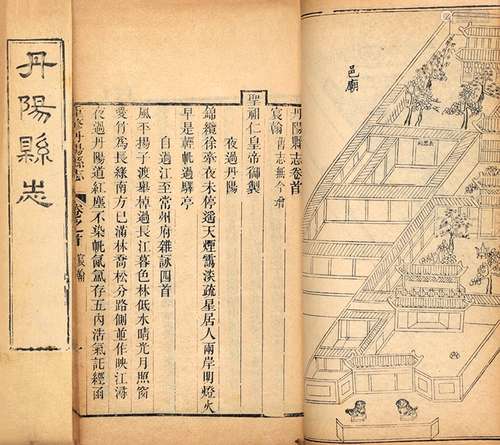 丹陽縣志
邑廟
丹陽縣志卷首
宸翰 舊志無今增
聖祖仁皇帝御製
夜過丹陽
錦纜徐牽夜未停遙天煙靄淡疏星居人兩岸明燈火
早是驛亭
自過江至常州府雜詠四首
風平揚子渡舉棹過長江暮色林低水晴光月照窗
愛竹為長綠南方已滿林喬松分路側並作映江潯
夜過丹陽道紅塵不染帆氤氳存五內浩氣託經函
重修丹陽縣志 卷之首 宸翰 一